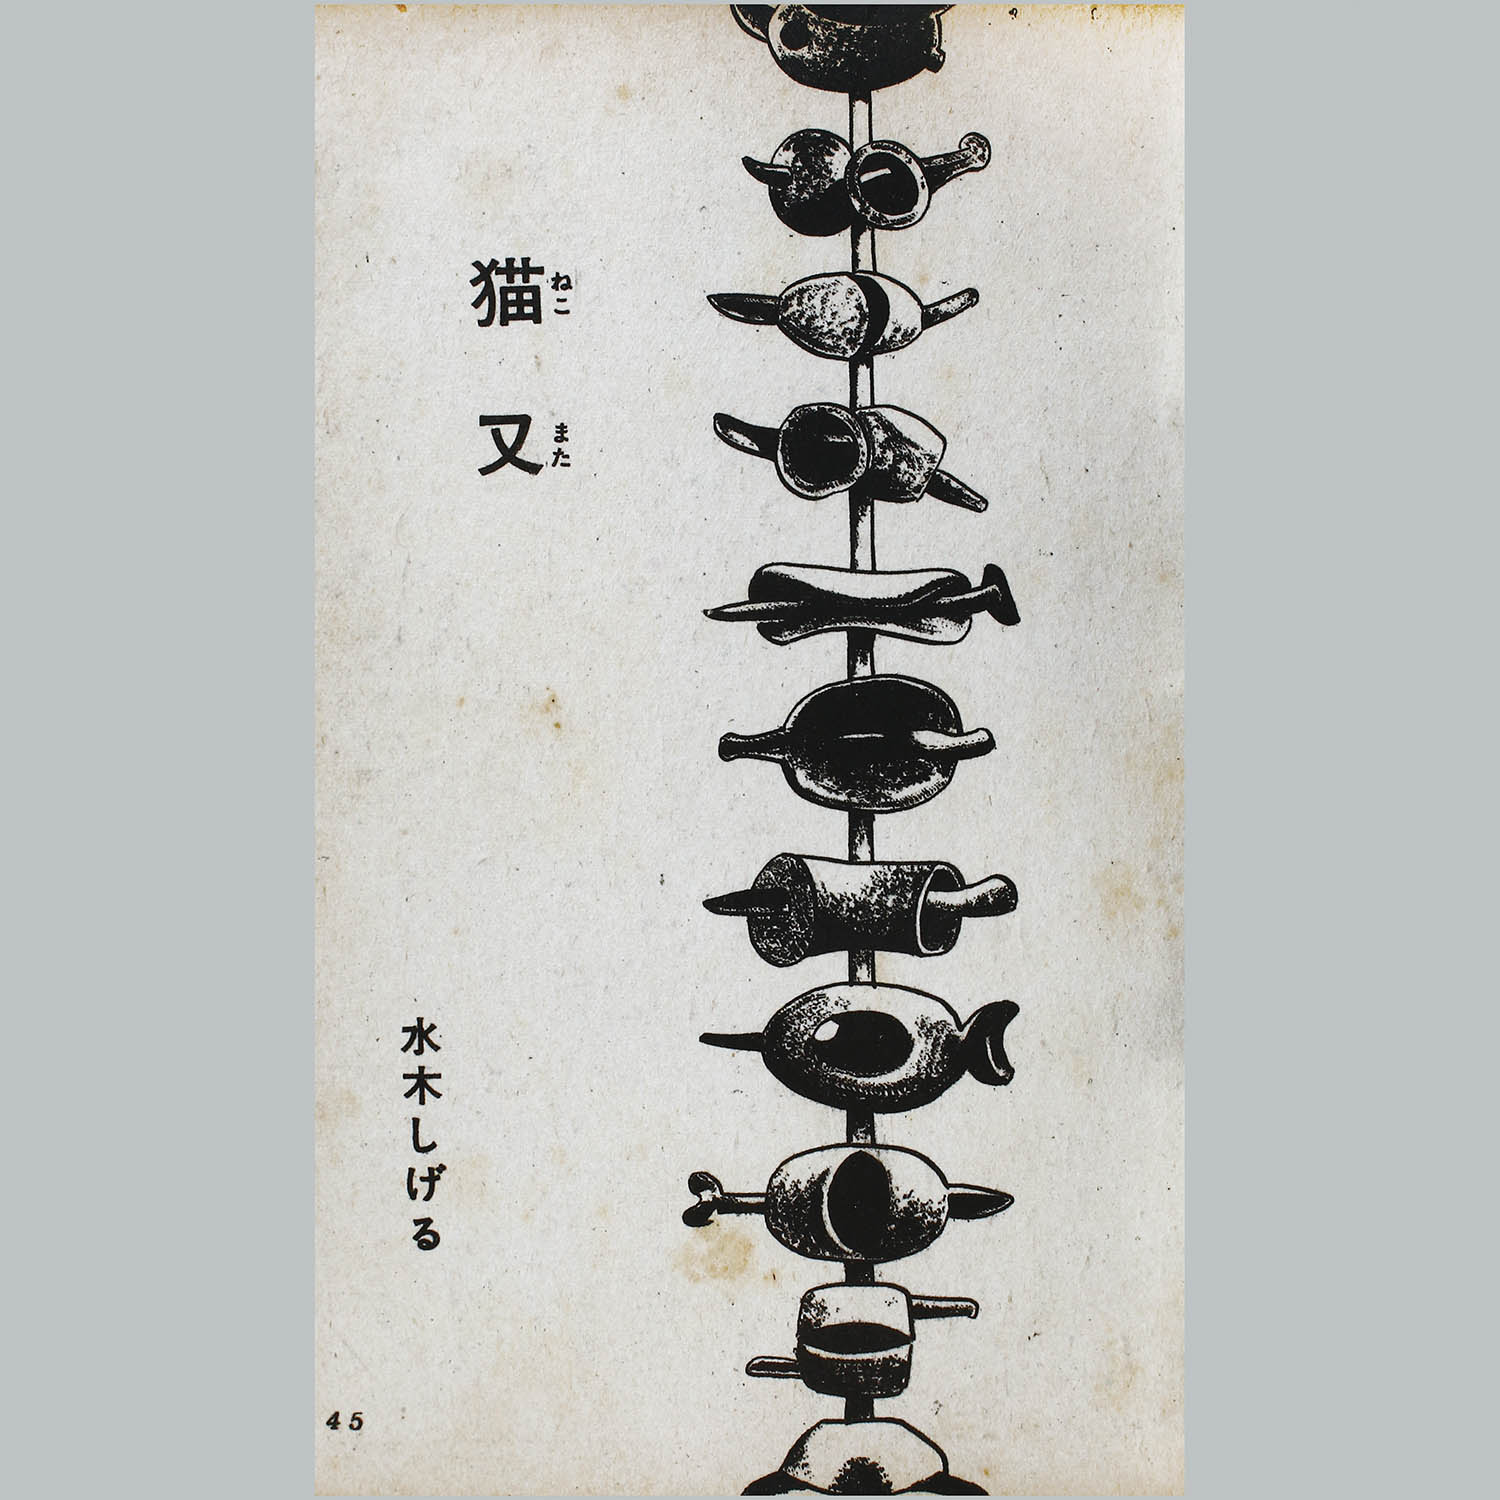 猫又
ねこ
また
水木しげる
45